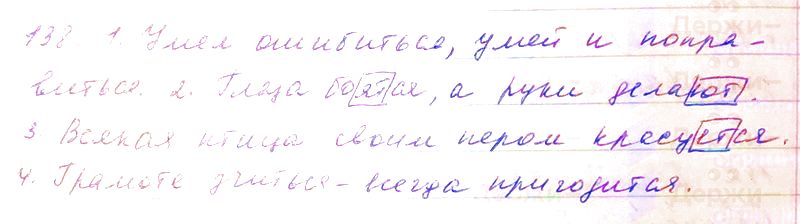 138. 1. Умел ошибиться, умей и попра-
виться. 2. Глаза боятся, а руки делают.
3 Всякая птица своим пером красуется.
4. Грамоте учиться - всегда пригодится.